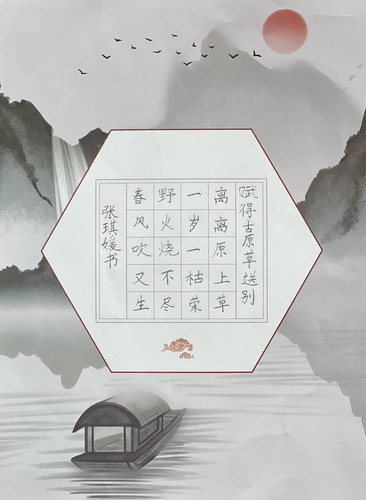 赋得古原草送别
离离原上草
一岁一枯荣
野火烧不尽
春风吹又生
张琪媛书